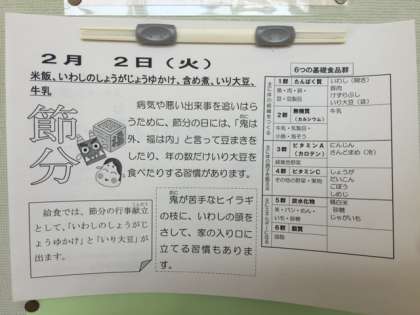 2月 2日(火)
米飯、いわしのしょうがじょうゆかけ、含め煮、いり大豆、
牛乳
節分
病気や悪い出来事を追いはら
うために、節分の日には、「鬼は
外、福は内」と言って豆まきを
したり、年の数だけいり大豆を
食べたりする習慣があります。
給食では、節分の行事献立
として、「いわしのしょうがじ
ょうゆかけ」と「いり大豆」が
出ます。
鬼が苦手なヒイラギ
の枝に、いわしの頭を
さして、家の入り口に
立てる習慣もありま
す。
6つの基礎食品群
1群 たんぱく質
魚・肉・卵・
豆・豆製品
いわし(開き)
豚肉
けずりぶし
いり大豆(袋)
2群 無機質
(カルシウム)
牛乳・乳製品・
小魚・海そう
牛乳
3群 ビタミンA
(カロテン)
緑黄色野菜
にんじん
さんどまめ(冷)
4群 ビタミンC
その他の野菜・果物
しょうが
だいこん
ごぼう
しめじ
5群 炭水化物
米・パン・めん・
いも・砂糖
精白米
砂糖
じゃがいも
6群 脂質
油脂